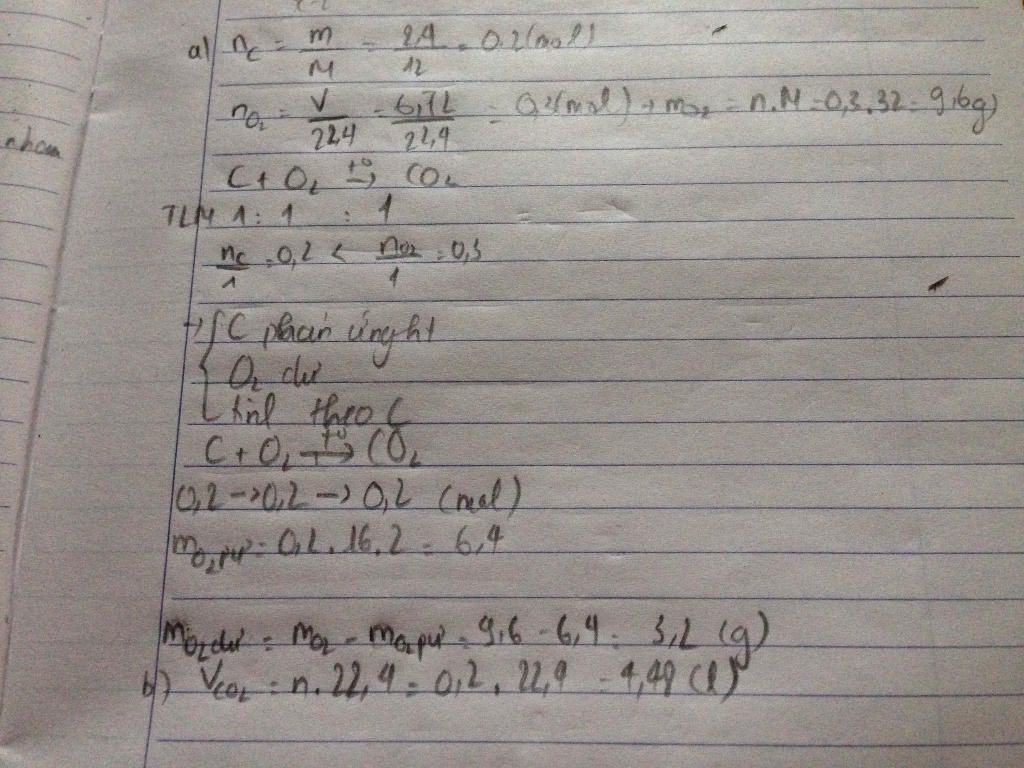 a) nC = m/M = 2,4/12 = 0,2 (mol)
nO2 = V/22,4 = 6,72/22,4 = 0,3 (mol) → mO2 = n.M = 0,3.32 = 9,6g)
nhom
C + O2 t°→ CO2
TLM 1 : 1 : 1
nC/1 = 0,2 < nO2/1 = 0,3
→ { C phản ứng hết
O2 dư
tính theo C
C + O2 t°→ CO2
0,2 → 0,2 → 0,2 (mol)
mO2pư = 0,2 . 16 . 2 = 6,4
mO2dư = mO2 - mO2pư = 9,6 - 6,4 = 3,2 (g)
b) VCO2 = n . 22,4 = 0,2 . 22,4 = 4,48 (l)